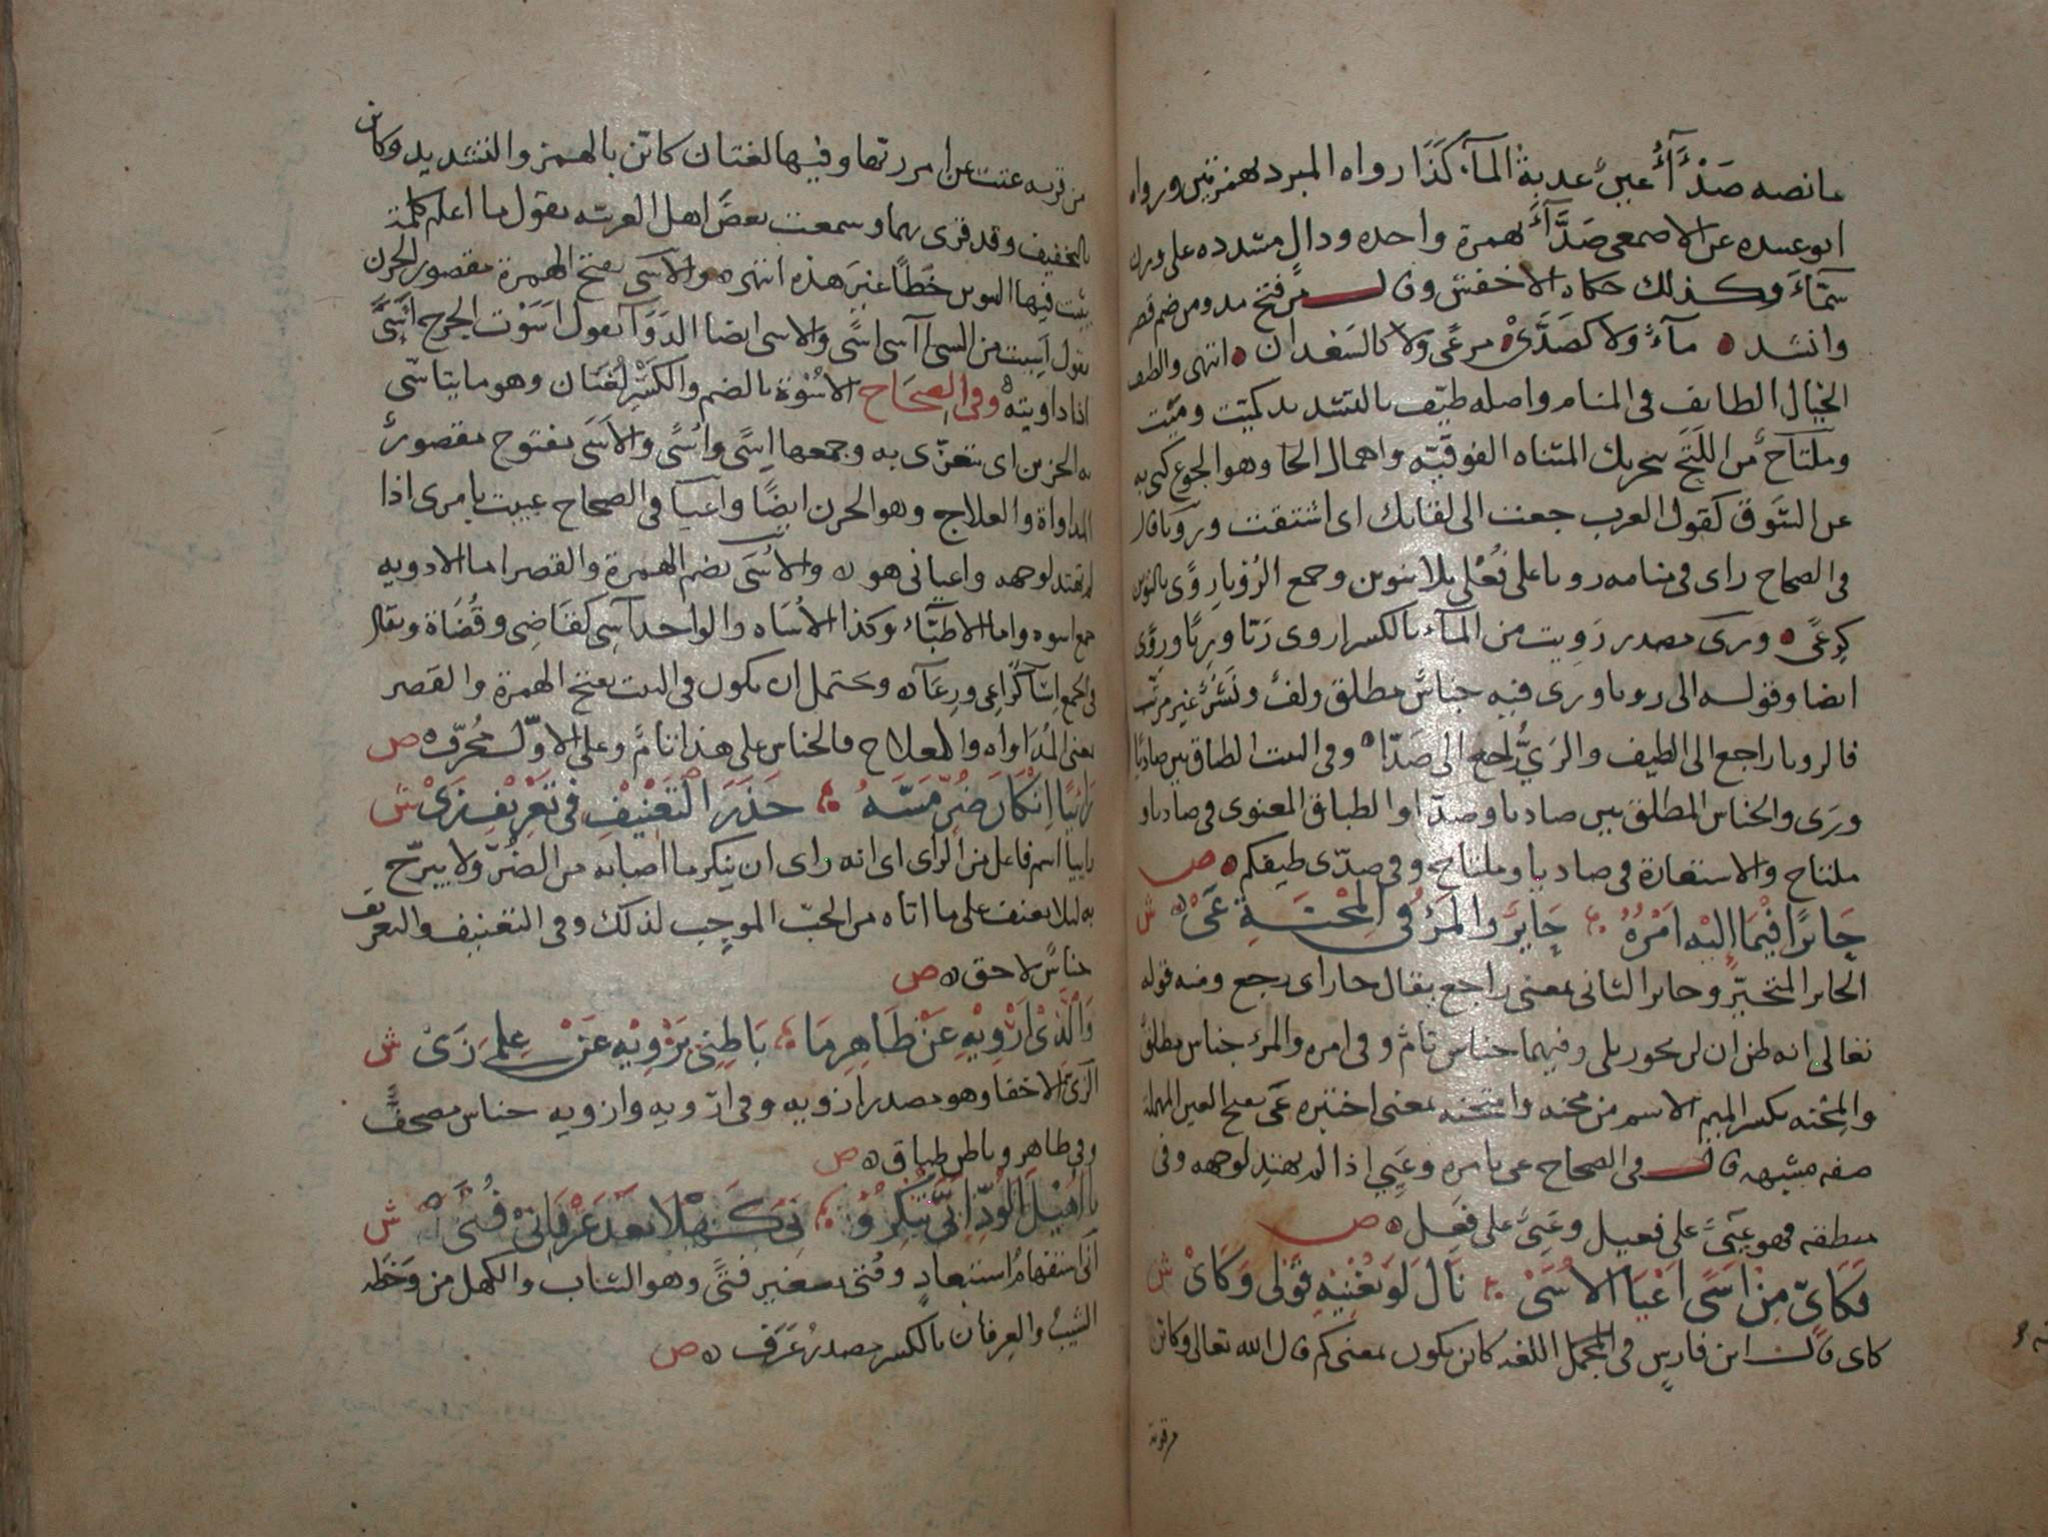 ما نصه صَدْآءُ عينٌ عذبةُ المآء كذا رواه المبرد بهمزتين ورواه
ابو عبيده عن الاصمعي صَدَّآءُ بهمزة واحده ودال مشدده على وزن
سمّاءَ وكذلك حكاه الاخفش وقال من فتح مد ومن ضم قصر
وانشد مآءٌ ولا كصَدَّى مرعًى ولا كالسَعْدان انتهى والطيف
الخيال الطايف في المنام واصله طيّف بالتشديد كميّت وميْت
وملتاح من اللَتَح بتحريك المثناه الفوقيّه واهمال الحا وهو الجوع كنى به
عن الشوق كقول العرب جعت الى لقايك اى اشتقت ورؤيا قال
في الصحاح راى في منامه رويا على فُعْلى بلا تنوين وجمع الرُؤيا رؤًى بالتنوين
كرعًى وري مصدر رَويت من المآء بالكسر اروى رَيّا ورِيّا وروًى
ايضا وقوله الى رويا ورى فيه جناسٌ مطلق ولفٌ ونَشْرٌ غير مرتب
فالرويا راجع الى الطيف والرَيُّ راجع الى صَدّا وفي البيت الطباق بين صاديًا
ورَى والجناس المطلق بين صاديا وصدّا والطباق المعنوى في صاديا و
ملتاح والاستعارة في صاديا وملتاح وفي صدّى طيفكم ص
حَايرًا فيْمَا اِليْه اَمْرُهُ حَايرٌ والمَرْؤُ في المِحْنَةِ عَىْ ش
الحاير المتحيّر وحاير الثاني بمعنى راجع يقال حار اى رجع ومنه قوله
تعالى انه ظن ان لن يحور بلى وفيهما جناس تامٌ وفي امره والمرء جناس مطلق
والمِحْنه بكسر الميم الاسم من محنه وامتحنه بمعنى اختبره عَى بفتح العين المهملة
صفه مشبهه قال في الصحاح عى بامره وعَيِي اذا لم يهتدِ لوجهه وفي
منطقه فهو عَييٌ على فعيل وعَىٌّ على فَعِل ص
فَكَأىّ مِنْ اَسًى اَعْيَا الاُسَىْ نَالَ لَوْ يُغْنِيْهِ قَوْلى وَكَأىْ ش
كاى قال ابن فارس في المجمل اللغه كاين يكون بمعنى كم قال الله تعالى وكاين
من قرية
من قريه عتت عن امر ربها وفيها لغتان كايّن بالهمز والتشديد وكاين
بالتخفيف وقد قرى بهما وسمعت بعضَ اهل العربيّه يقول ما اعلم كلمة
يثبت فيها التنوين خَطًا غيرَ هذه انتهى والاسَى بفتح الهمزة مقصور الحزن
يقول اَسِيت من الشى آسى اسًى والاسى ايضا الدَوَآ تقول اَسَوْت الجرح اَسًى
اذا داويته وفي الصِحَاح الاسُوْة بالضم والكَسْر لغتان وهو ما يتاسّى
به الحزين اى يتعزّى به وجمعها اِسًى واُسًى والاَسَى مفتوح مقصورٌ
المداواة والعلاج وهو الحزن ايضًا واعيا في الصحاح عييت بامرى اذا
لم تهتد لوجهه واعياني هو والاُسَى بضم الهمزة والقصر اما الادويه
جمع اسوه واما الاطبّاءُ وكذا الاُسَاه والواحد آسِى كقاضِى وقُضَاة ويقال
في الجمع اِسَآ كراعِى ورِعَآ ويحتمل ان يكون في البيت بفتح الهمزة والقصر
بمعنى المُدَاواه والعلاج فالجناس على هذا تامٌ وعلى الاوّل محُرّف ص
رَايِيًا اِنْكَارَ ضُرٍّ مَسَّهُ حَذَرَ التَعْنِيْفِ فِي تَعْرِيْفِ رَىْ ش
راييا اسم فاعل من الراى اى انه راى ان ينكر ما اصابه من الضُرّ ولا يبرّح
به ليلا يعنف على ما اتاه من الحبّ الموجِب لذلك وفي التعنيف والتعريف
جناسٌ لاحق ص
وَالَّذِىْ اَرْوِيْهِ عَنْ ظَاهِرِ مَا بَاطِنِيْ يَزْوِيْهِ عَنْ عِلمِىَ زَىْ ش
الزىّ الاخفا وهو مصدر ازويه وفي ارويه وازويه جناس مصحفٌ
وفي ظاهر وباطن طباق ص
يا اُهَيْلَ الوُدِّ اَنّى تُنْكِرُوْ نِىَ كَهْلًا بَعْدَ عِرْفَانِى فُتَىْ ش
آنى استفهامُ استبعادٍ وفُتى تصغير فتًى وهو الشاب والكهل من وَخَطه
الشيبُ والعِرفان بالكسر مصدرُ عَرَف ص